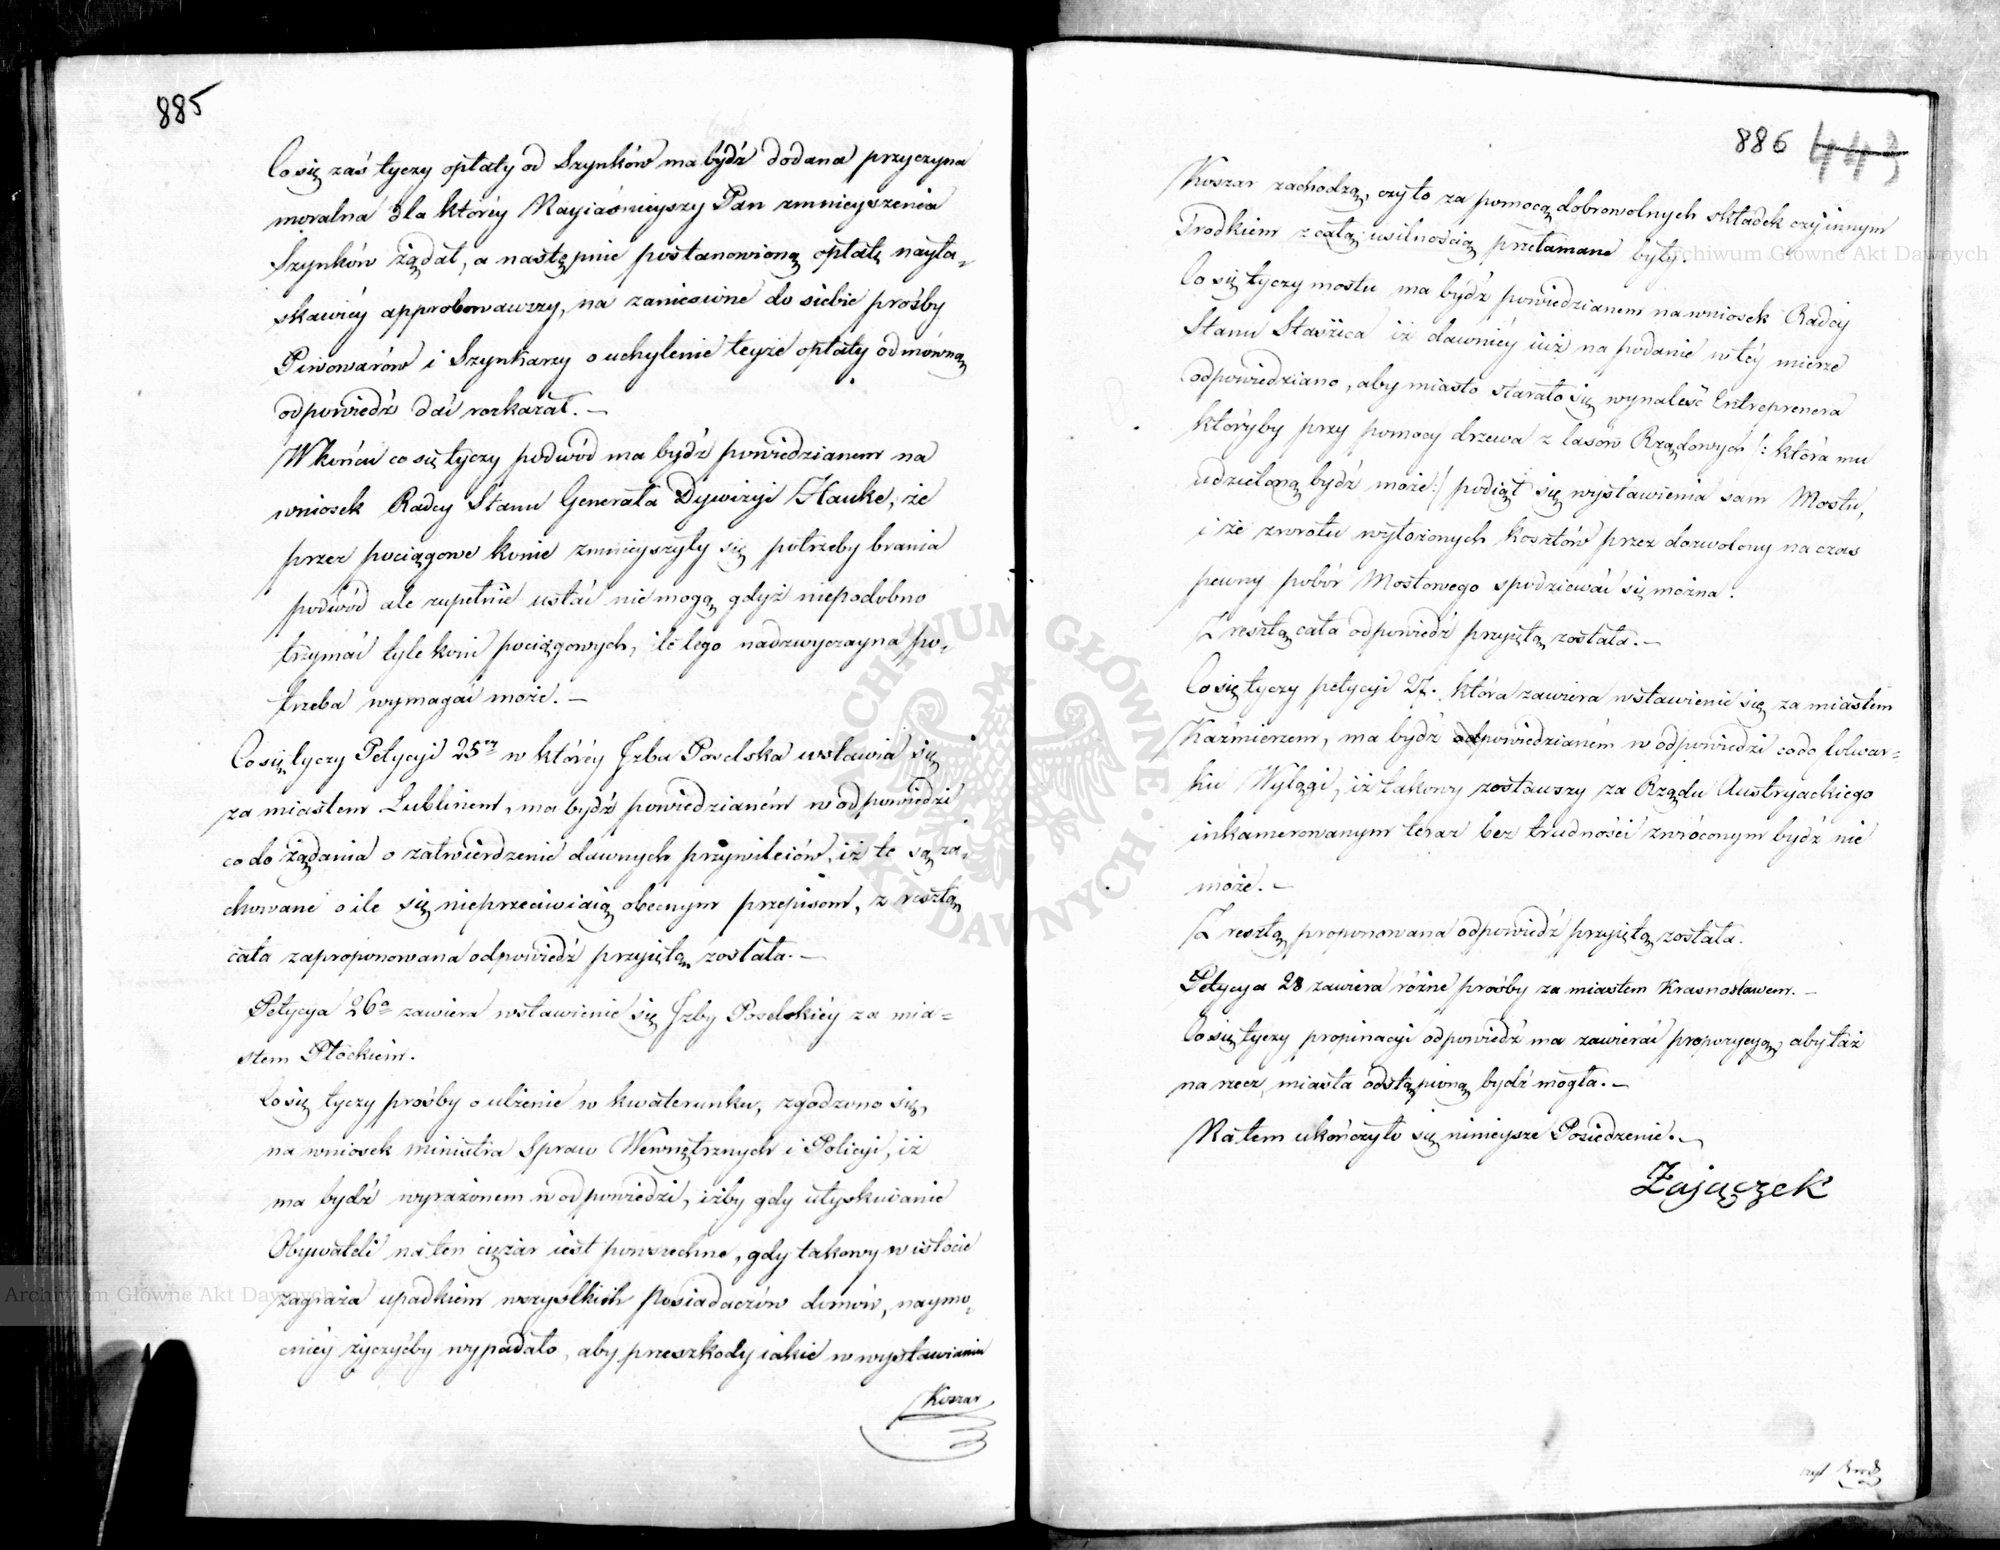 885
Co się zaś tyczy opłaty od Szynków ma bydź dodana przyczyna
moralna dla któréy Nayiaśnieyszy Pan zmnieyszenia
Szynków żądał, a następnie postanowioną opłatę nayła-
skawiéy approbowawszy, na zaniesione do siebie prośby
Piwowarów i Szynkarzy o uchylenie teyże opłaty odmówną
odpowiedź dać rozkazał. —
W końcu co się tyczy podwód ma bydź powiedzianem na
wniosek Radcy Stanu Generała Dywizyi Hauke, że
przez pociągowe konie zmnieyszyły się potrzeby brania
podwód ale zupełnie ustać nie mogą gdyż niepodobno
trzymać tyle koni pociągowych, ile tego nadzwyczayna po-
trzeba wymagać może. —
Co się tyczy Petycyi 25ey w któréy Izba Poselska wstawia się
za miastem Lublinem, ma bydź powiedzianém w odpowiedzi
co do żądania o zatwierdzenie dawnych przywileiów, iż te są za-
chowane o ile się nieprzeciwiaią obecnym przepisom, z resztą
cała zaproponowana odpowiedź przyiętą została. —
Petycya 26a zawiera wstawienie się Izby Poselskiéy za mia-
stem Płockiem.
Co się tyczy prośby o ulżenie w kwaterunku, zgodzono się,
na wniosek Ministra Spraw Wewnętrznych i Policyi, iż
ma bydź wyrażonem w odpowiedzi, iżby gdy utyskiwanie
Obywateli na ten ciężar iest powszechne, gdy takowy w istocie
zagraża upadkiem wszystkich Posiadaczów domów, naymo-
cniéy życzyćby wypadało, aby przeszkody iakie w wystawianiu
Koszar
886 443
Koszar zachodzą, czy to za pomocą dobrowolnych składek czy innym
Środkiem z całą usilnością przełamane były.
Co się tyczy mostu ma bydź powiedzianem na wniosek Radcy
Stanu Staszica iż dawniéy iuż na podanie w téy mierze
odpowiedziano, aby miasto starało się wynaleść Entreprenera
któryby przy pomocy drzewa z lasów Rządowych /: która mu
udzieloną bydź może :/ podiął się wystawienia sam Mostu,
i że zwrotu wyłożonych kosztów przez dozwolony na czas
pewny pobór Mostowego spodziewać się można.
Z resztą cała odpowiedź przyiętą została. —
Co się tyczy petycyi 27. która zawiera wstawienie się za miastem
Kaźmierzem, ma bydź odpowiedzianém w odpowiedzi co do folwar-
ku Wylągi, iż takowy zostawszy za Rządu Austryackiego
inkamerowanym teraz bez trudności zwróconym bydź nie
może. —
Z resztą proponowana odpowiedź przyiętą została.
Petycya 28 zawiera różne prośby za miastem Krasnostawem. —
Co się tyczy propinacyi odpowiedź ma zawierać propozycyą, aby taż
na rzecz miasta odstąpioną bydź mogła. —
Na tem ukończyło się ninieysze Posiedzenie. —
Zajączek
Archiwum Główne Akt Dawnych
Archiwum Główne Akt Dawnych
ARCHIWUM GŁÓWNE AKT DAWNYCH